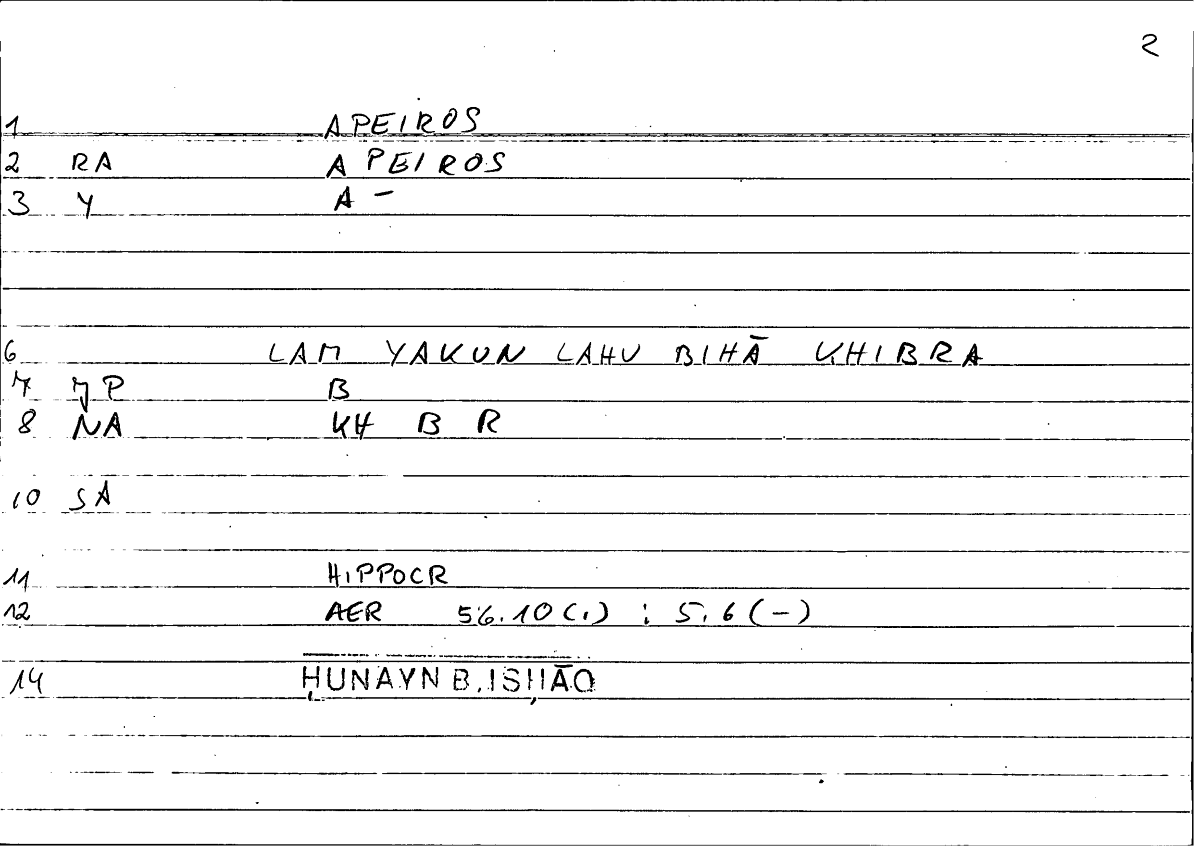 2
1 APEIROS
2 RA APEIROS
3 Y A –
6 LAM YAKUN LAHU BIHĀ KHIBRA
7 JP B
8 NA KH B R
10 SA
11 HIPPOCR
12 AER 56.10(1) ; 5,6(-)
14 ḤUNAYN B. ISḤĀQ